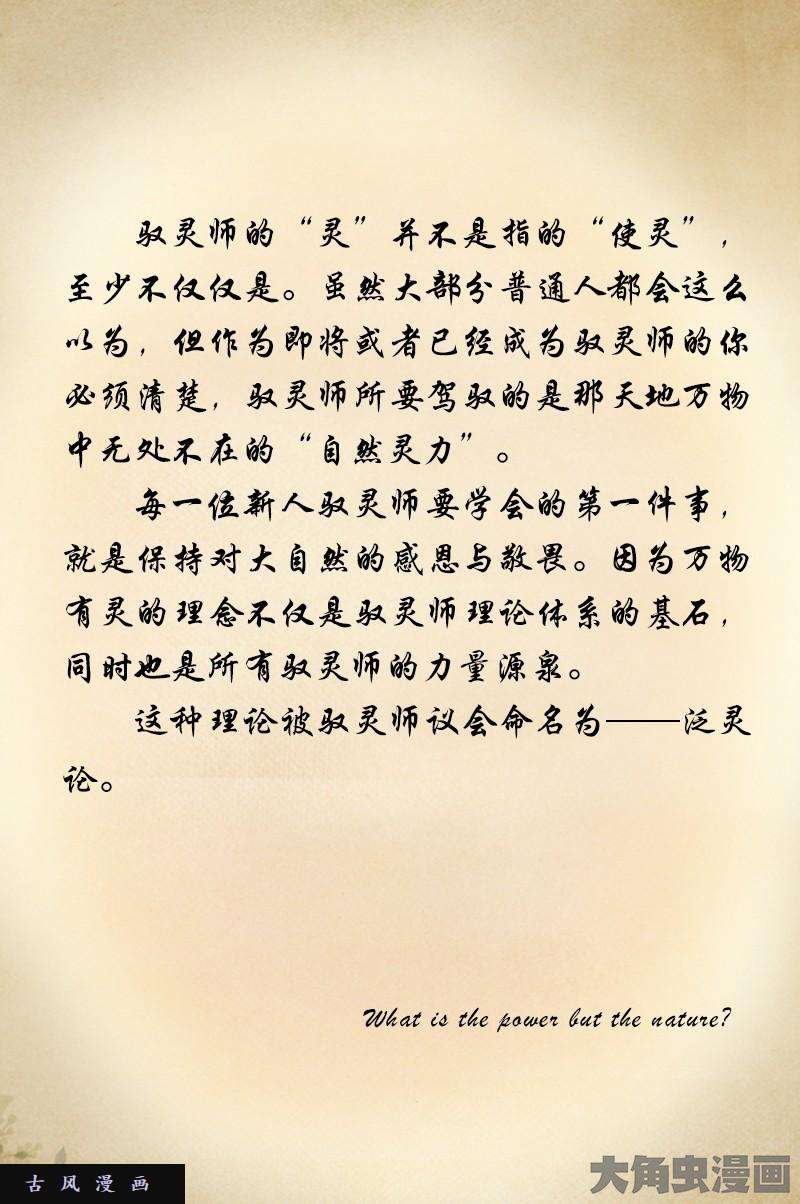 驭灵师的“灵”并不是指的“使灵”，
至少不仅仅是。虽然大部分普通人都会这么
以为，但作为即将或者已经成为驭灵师的你
必须清楚，驭灵师所要驾驭的是那天地万物
中无处不在的“自然灵力”。
每一位新人驭灵师要学会的第一件事，
就是保持对大自然的感恩与敬畏。因为万物
有灵的理念不仅是驭灵师理论体系的基石，
同时也是所有驭灵师的力量源泉。
这种理论被驭灵师议会命名为——泛灵
论。
What is the power but the nature?
古风漫画
大角虫漫画